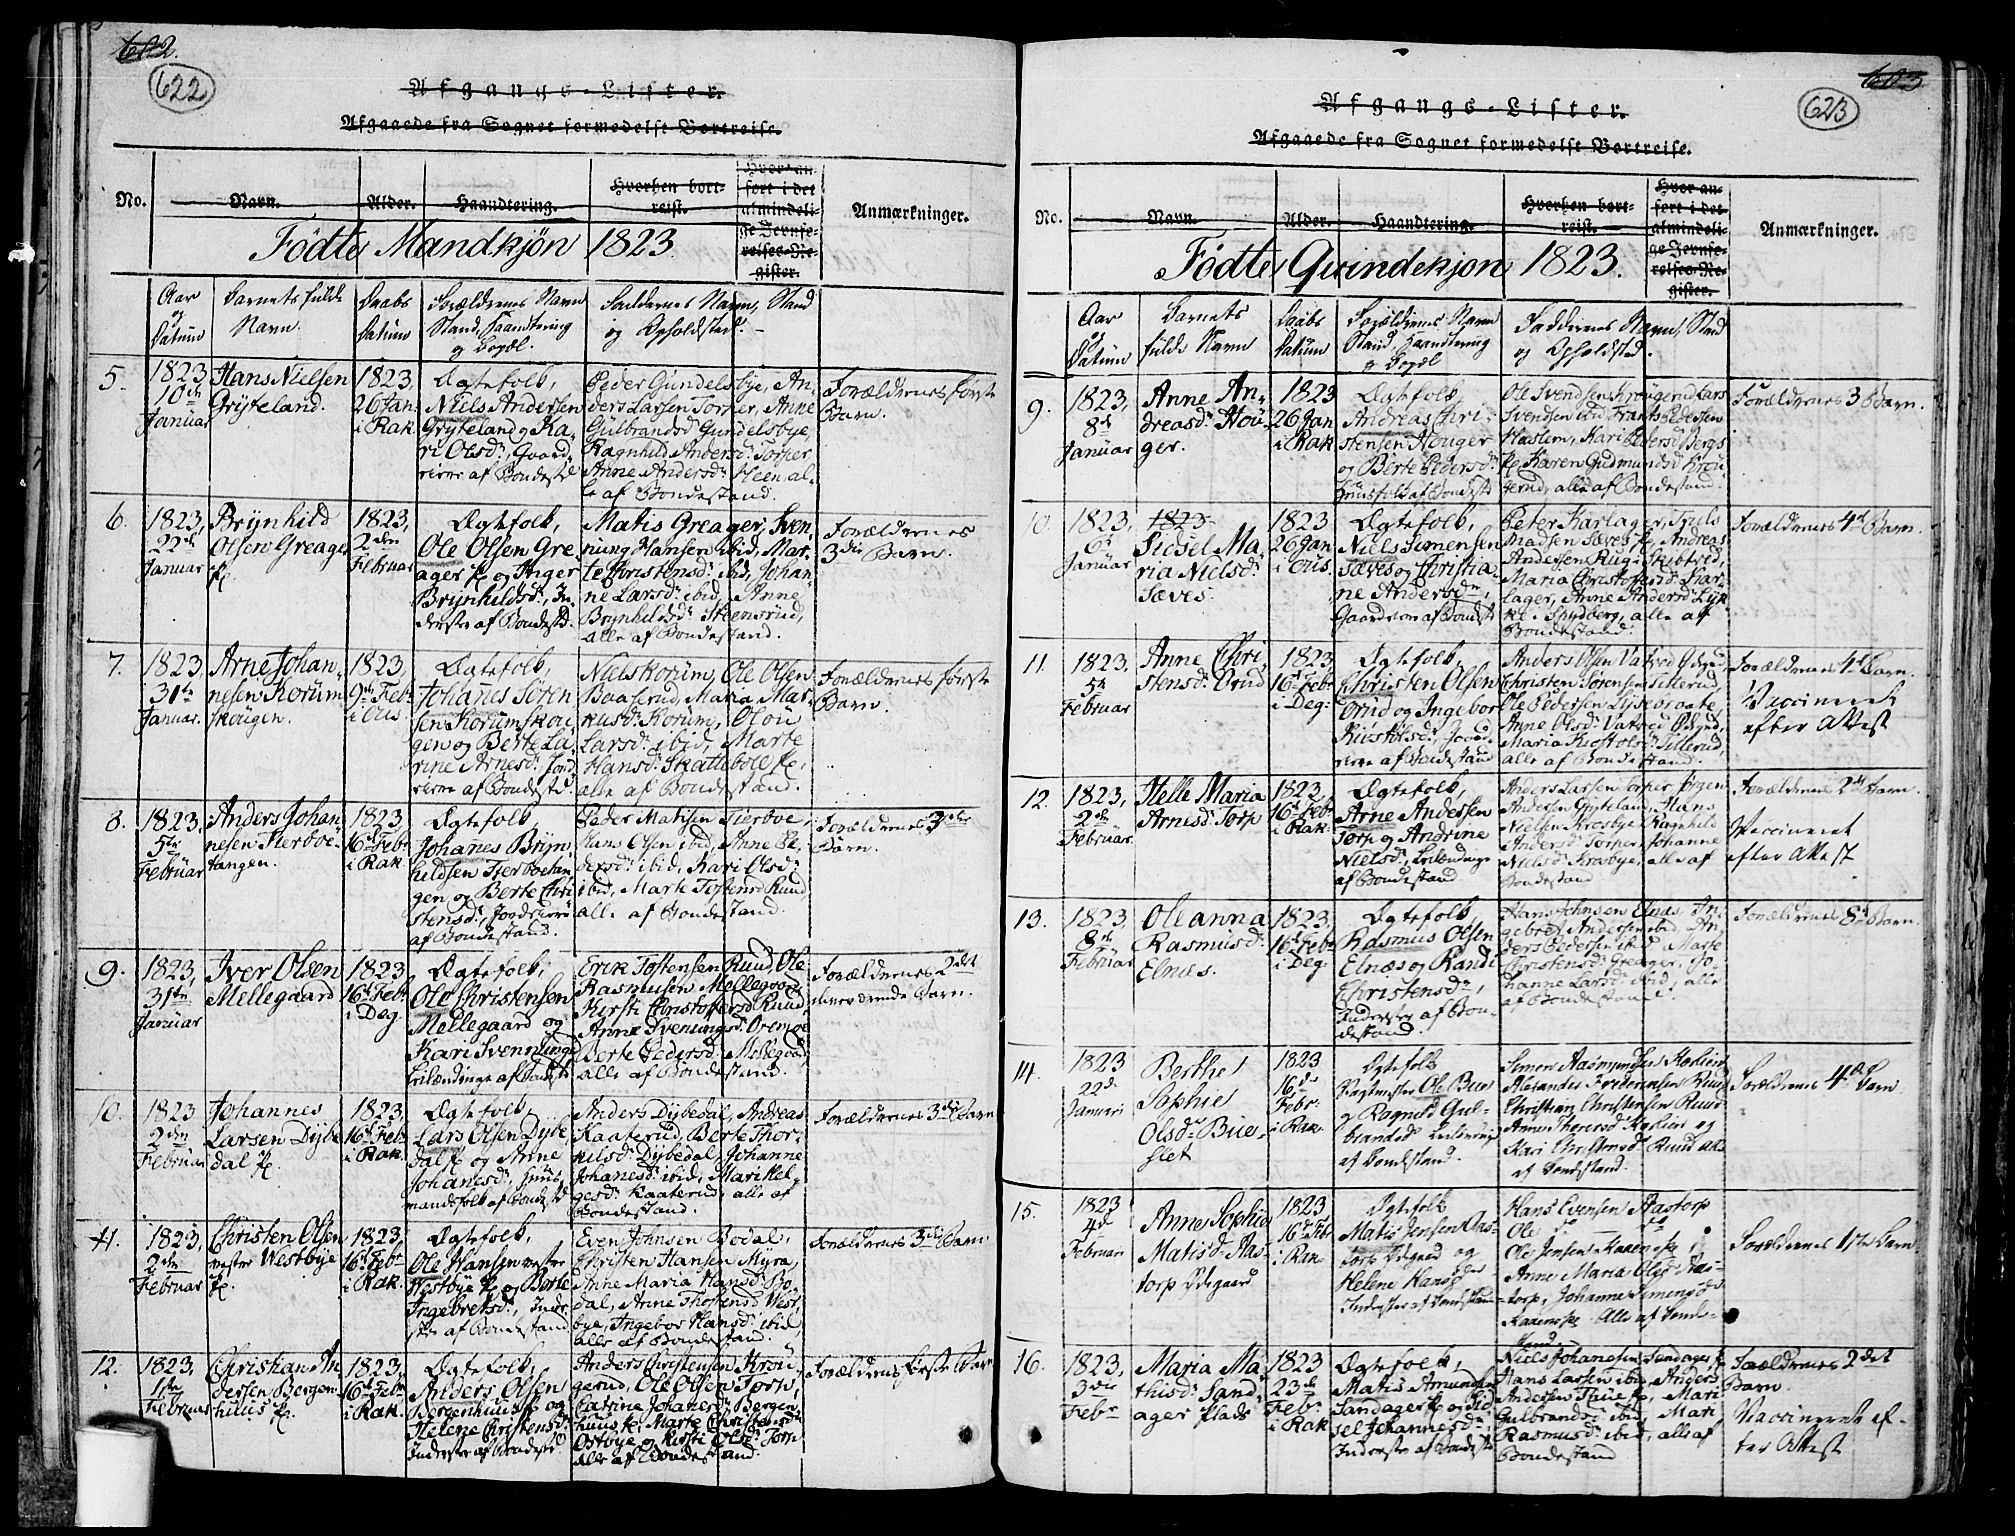 602.
622
Afgangs-Lister.
Afgaaede fra Sognet formedelst Bortreise.
No.
Navn.
Alder.
Haandtering.
Hvorhen bort-
reist.
Hvor an-
ført i det
almindeli-
ge Jevnfø-
relses-Re-
gister.
Anmærkninger.
Födte Mandkjön 1823.
Aar
og
Datum
Barnets fulde
Navn.
Daabs
Datum
Forældrenes Navn
Stand, Haandtering
og Bopæl.
Faddernes Navn, Stand
og Opholdsted.
5.
1823,
10de
Januar
Hans Nielsen
Gryteland.
1823,
26 Jan.
i Rak.
Ægtefolk,
Niels Andersen
Gryteland og Ka-
ri Olsd:, Gaard-
Peder Gundelsbye, An-
ders Larsen Torper, Anne
Gulbrandsd: Gundelsbye,
Ragnhild Andersd: Torper
Anne Andersd: Heen, al-
le af Bondestand.
Forældrenes første
Barn.
6.
1823,
22de
Januar
Brynhild
Olsen Greager
1823,
2den
Februar
Ægtefolk,
Ole Olsen Gre-
ager og Inger
Brynhildsd:, In-
derster af Bondestd.
Matis Greager, Sven-
nung Hansen ibid, Mar-
te Christensd: ibid, Johan-
ne Larsd: ibid, Anne
Brynhildsd: Steensrud,
alle af Bondestand.
Forældrenes
3die Barn.
7.
1823,
31te
Januar.
Arne Johan-
nesen Korum-
skougen.
1823,
9de Febr.
i Ous
Ægtefolk,
Johanes Sören-
sen Korumskou-
gen og Berte La-
rine Arnesd:
Niels Korum, Ole Olsen
Baaserud, Maria Mar-
kusd: Korum,
Larsd: ibid, Marte
Hansd: Skattebøle
alle af Bondestand.
Forældrenes første
Barn.
8.
1823,
5te
Februar
Anders Johan-
nesen Tierboe-
tangen.
1823,
16de Febr.
i Rak.
Ægtefolk,
Johanes Bryn-
hildsen Tierboetan-
gen og Berte Chri-
stensd:
af Bondestand.
Peder Matisen Tierboe,
Hans Olsen ibid, Anne Pe-
dersd: ibid, Kari Olsd:
ibid, Marte Tostensd Ruud
alle af Bondestand.
Forældrenes 3die
Barn.
9.
1823,
31te
Januar
Iver Olsen
Mellegaard
1823,
16de Febr.
i Deg.
Ægtefolk,
Ole Christensen
Mellegaard og
Kari Svennungsd
Leilændinge af Bondestd
Erik Tostensen Ruud, Ole
Rasmusen Mellegaard
Kirsti Christoffersd Ruud,
Anne Svenungsd:
Berte Pedersd: Mellegaard
alle af Bondestand.
Forældrenes 2det
Barn.
10.
1823
2den
Februar
Johannes
Larsen Dybe-
dal
1823,
16de Febr.
i Rak.
Ægtefolk,
Lars Olsen Dybe-
dal og Anne
Johanesd:, Huus-
mandsfolk af Bondestd
Anders Dybedal, Andreas
Kaaterud, Berte Thor-
kilsd: Dybedal, Johanne
Johanesd: ibid, Mari Hel-
gesd: Kaaterud, alle af
Bondestand.
Forældrenes 3die Barn
11.
1823,
2den
Februar
Christen Olsen
vestre Westbye
1823,
16de Febr.
i Rak.
Ægtefolk,
Ole Hansen vestre
Westbye og Berte
Ingebretsd:, Inder-
ster af Bondestand
Even Johnsen Bodal,
Christen Hansen Myra,
Anne Maria Hansd: Bo-
dal, Anne Thostensd: West-
bye, Ingebor Hansd: ibid,
alle af Bondestand.
Forældrenes 3die Barn.
12.
1823,
1ste
Februar
Christian An-
dersen Bergen-
huus
1823,
16de Febr.
i Rak.
Ægtefolk,
Anders Olsen
Bergenhuus og
Helene Christensd:
Inderster af Bondestd
Anders Christensen Krou-
gerud, Ole Olsen Torp,
Catrine Johanesd: Bergen-
huus, Marte Christensd:
Ostbye og Kirsti Olsd: Torp
alle af Bondestand.
Forældrenes første Barn
603
623
Afgangs-Lister.
Afgaaede fra Sognet formedelst Bortreise.
No.
Navn.
Alder.
Haandtering.
Hvorhen bort-
reist.
Hvor an-
ført i det
almindeli-
ge Jevnfø-
relses-Re-
gister.
Anmærkninger.
Födte Qvindekjön 1823.
Aar
og
Datum
Barnets
fulde Navn
Daabs
Datum
Forældrenes Navn
Stand, Haandtering
og Bopæl
Faddernes Navn, Stand
og Opholdsted.
9.
1823,
8de
Januar
Anne An-
dreasd: Hou-
ger.
1823
26 Jan
i Rak
Ægtefolk,
Andreas Chri-
stensen Houger
og Berte Pedersd:
Huusfolk af Bondestd
Ole Svendsen Krougerud Lars
Svendsen ibid Frants Pedersen
Haslem, Kari Pedersd: Bergs
Karen Gudmundsd Krou-
gerud, alle af Bondestand.
Forældrenes 3 Barn.
10.
1823,
6te
Januar
1823
Sidsel Ma-
ria Nielsd:
Sæves.
1823
26 Jan
i Ous.
Ægtefolk,
Niels Simensen
Sæves og Christia-
ne Andersdr.,
af Bondestd
Peter Karlager, Truls
Madsen Sæves, Andreas
Andersen Rug: Skibtved,
Maria Christoffersd: Kar-
lager, Anne Andersd: Lyk-
ke i Spydberg, alle af
Bondestand.
Forældrenes 4de Barn.
11.
1823,
5te
Februar
Anne Chri-
stensd: Örud
1823,
16de Febr
i Deg:
Ægtefolk,
Christen Olsen
Örud og Ingebor
af Bondestand
Anders Olsen Vatved
Christen Sörensen Sitterud,
Ole Pedersen Lysebraate
Anne Olsd: Vatved
Maria Kiostolsd: Sitterud,
alle af Bondestand.
Forældrenes 4de Barn.
Vaccineret
efter Attest
12.
1823,
2den
Februar
Helle Maria
Arnesd: Torp
1823,
16de Febr
i Rak.
Ægtefolk,
Arne Andersen
Torp og Andrine
Nielsd:, Leilændinge
af Bondestand
Anders Larsen Torper Jörgen
Andersen Gryteland, Hans
Nielsen Krosbye, Ragnhild
Andersd: Torper, Johanne
Nielsd: Krosbye, alle af
Bondestand
Forældrenes 2det Barn.
Vaccineret
efter Attest
13.
1823,
8de
Februar
Oleanna
Rasmusd:
Elnæs.
1823,
16de Febr
i Deg:
Ægtefolk,
Rasmus Olsen
Elnæs og Randi
Christensdr.,
Inderster af Bon-
destand.
Hans Johnsen Elnæs, In-
gebret Andersen ibid, An-
ders Pedersen ibid, Marte
Christensd: Greager, Jo-
hanne Larsd: ibid, alle
af Bondestand.
Forældrenes 8de Barn.
14.
1823
22de
Januari
Berthe
Sophie
Olsdr Bue-
slet
1823
16de
Febr:
i Rak.
Ægtefolk
Ole Bue-
og Ragnild Gul-
brandsd
af Bondestand.
Simen Aasmundsen
Alexander Fredericksen Ruud
Christian Christensen Ruud
Anne Thoresd
Kari Christensd: Ruud alle
af Bondestand.
Forældrenes 4de Barn
15.
1823
4de
Februari
Anne Sophie
Matisd: Aas-
torp Ödegaard
1823
16de Febr
i Rak.
Ægtefolk
Matis Jensen Aas-
torp Ödegaard og
Helene Hansdr
Inderster af Bondestand
Hans Evensen Aastorp
Ole do do
Ole Jensen
Anne Maria Olsd: Aas-
torp, Johanne Simensd
Alle af Bonde-
stand.
Forældrenes 1ste Barn
16.
1823,
3die
Febr
Maria Ma-
thisd: Sand-
ager Plads
1823
23de
Febr.
i Rak
Ægtefolk,
Matis Amundsen
Sandager og Sid-
sel Johannesd:
Inderster af Bondestd
Niels Johanesen Sandager
Hans Larsen ibid, Anders
Andersen Thue, Mari
Gulbrandsd: ibid, Mari
Rasmusd: ibid, alle af
Bondestand
Forældrenes 2det
Barn.
Vaccineret ef-
ter Attest